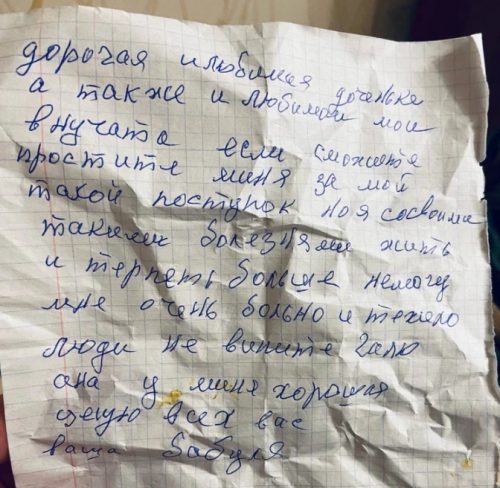 дорогая и любимая доченька
а также и любимои мои
внучата если сможите
простите миня за мой
такой поступок но я сосвоими
такими болезнями жить
и терпеть больше немогу
мне очень больно и тежело
люди не вините Галю
она у миня хорошая
целую всех вас
ваша бабуля